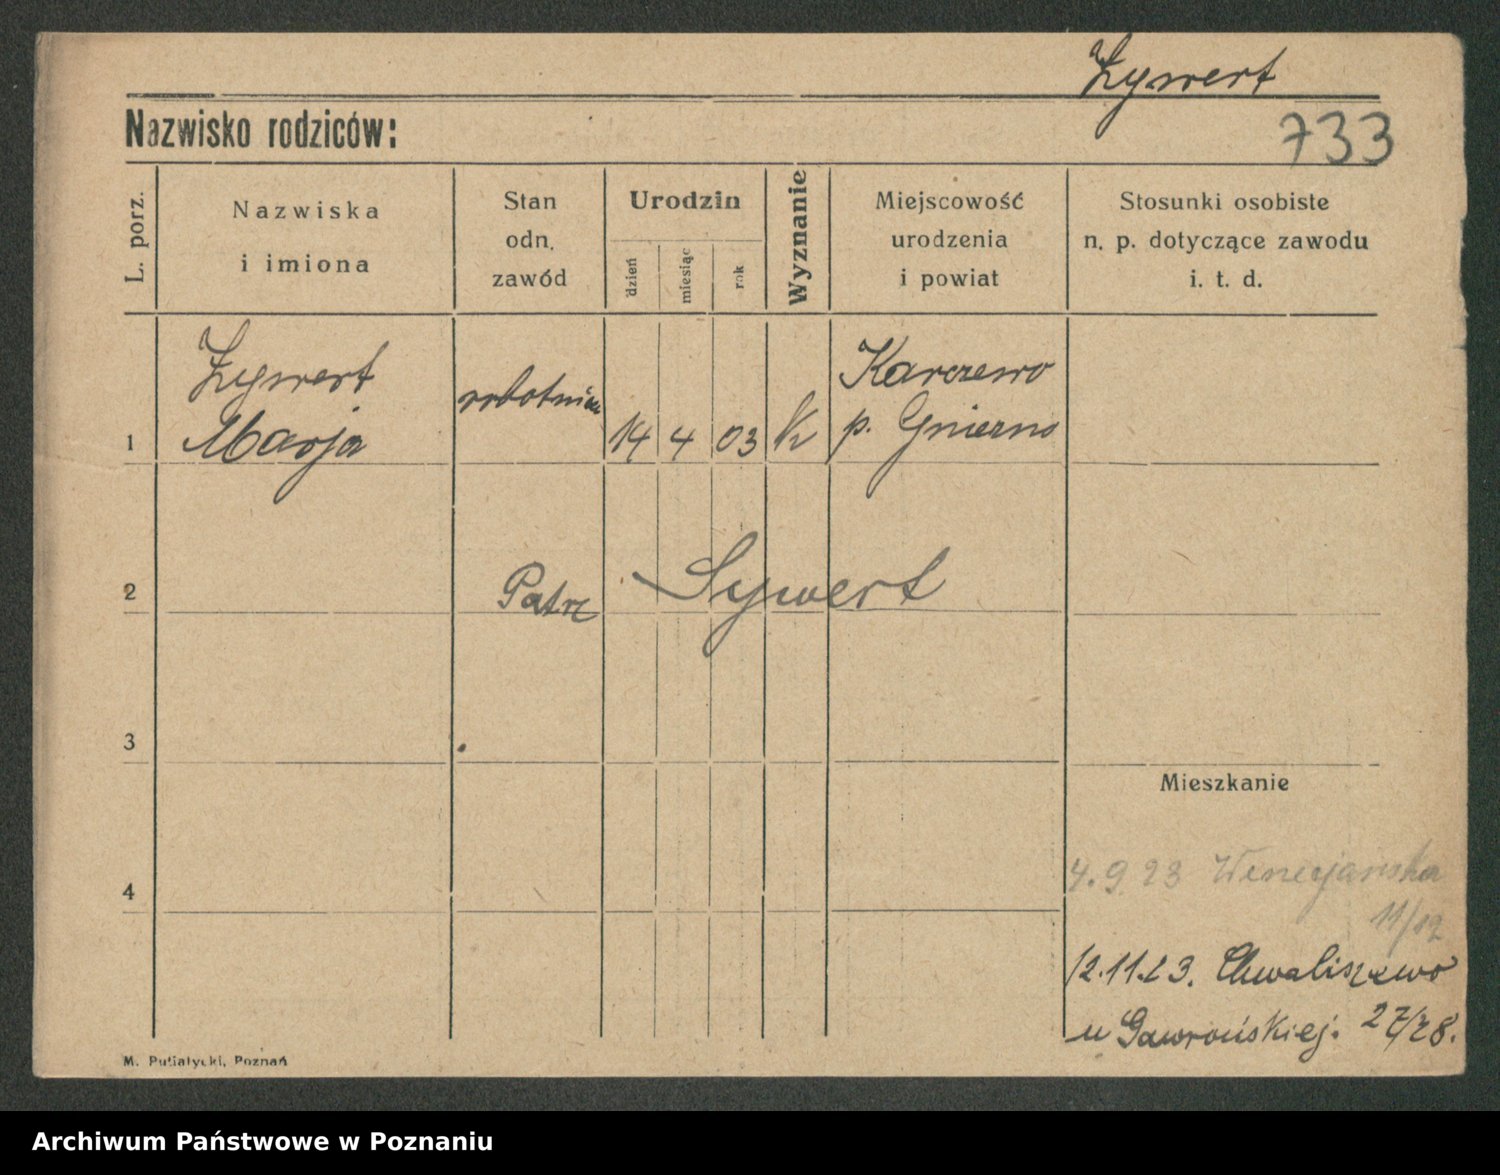 Zywert
Nazwisko rodziców:
733
L. porz.
Nazwiska
i imiona
Stan
odn.
zawód
Urodzin
dzień
miesiąc
rok
Wyznanie
Miejscowość
urodzenia
i powiat
Stosunki osobiste
n. p. dotyczące zawodu
i. t. d.
1
Zywert
Marja
robotnica
14
4
03
K
Karczewo
p. Gniezno
2
Patrz Sywert
3
Mieszkanie
4
4.9.23 Wenecjańska
11/12
12.11.23. Chwaliszewo
u Gawrońskiej. 27/28.
M. Putiatycki, Poznań
Archiwum Państwowe w Poznaniu